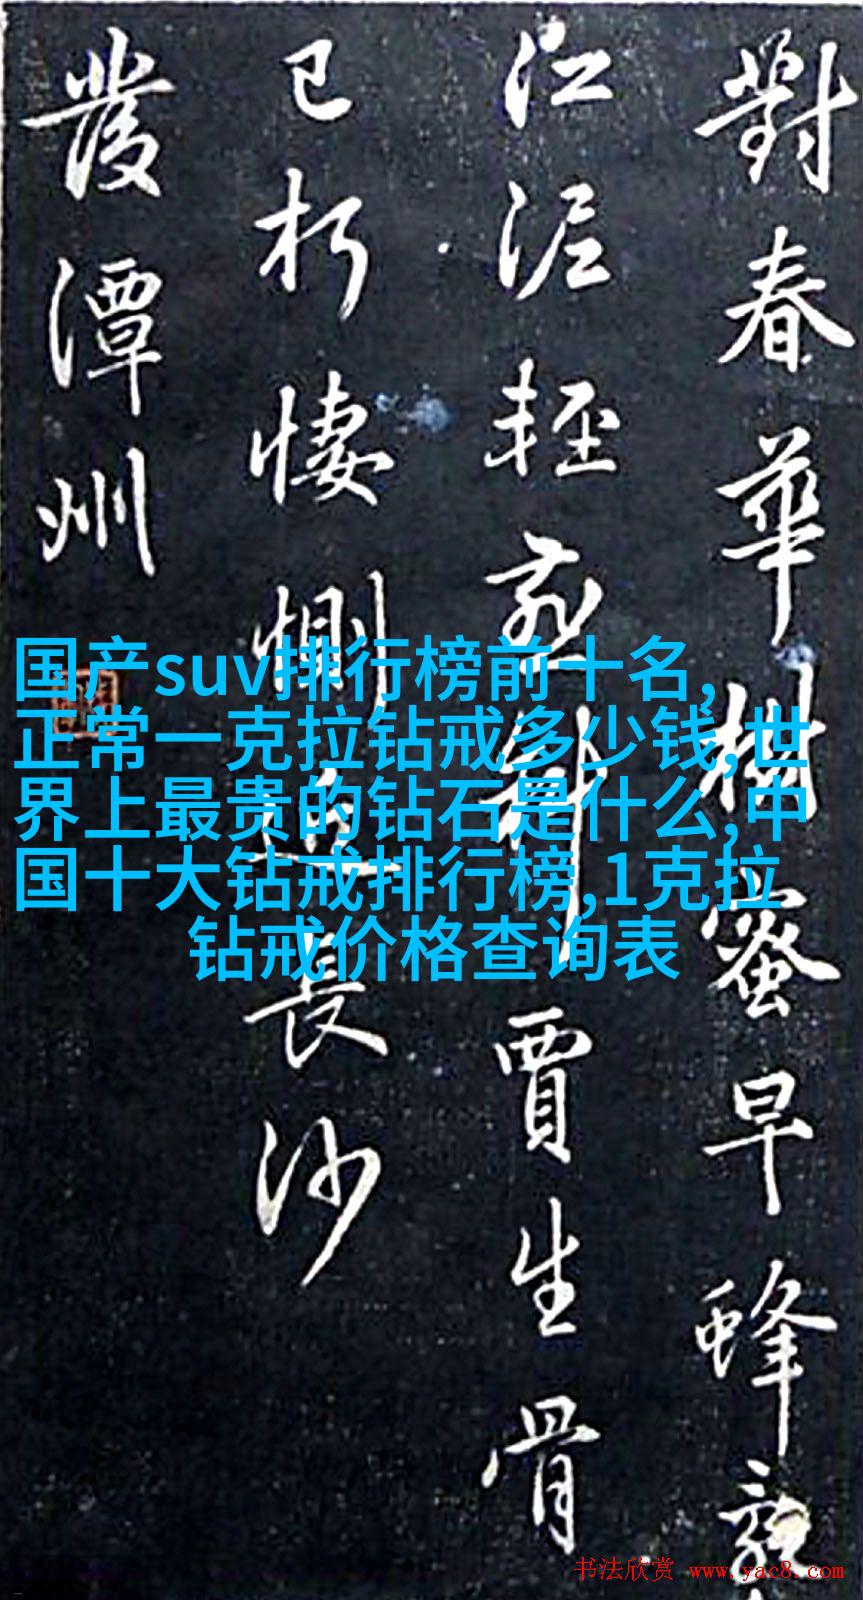 對春華樹蜜早蜂
江泥輕燕斜賈生骨
已朽悽惻近長沙
發潭州
国产suv排行榜前十名,
正常一克拉钻戒多少钱,世
界上最贵的钻石是什么,中
国十大钻戒排行榜,1克拉
钻戒价格查询表
书法欣赏 www.yac8.com